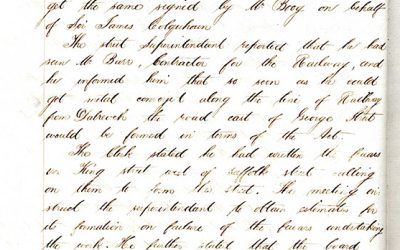 get the same signed by Mr Brog on behalf
of Sir James Colquhoun.
The street Superintendent reported that he had
seen Mr Barr, Contractor for the Railway, and
he informed him that so soon as he could
get metal conveyed along the line of Railway
from Dalreoch the road east of George Street
would be formed in terms of the Act.
The Clerk stated he had written the feuars
in King street west of Suffolk street calling
on them to form the street. The meeting in-
struct the superintendent to obtain estimates for
its formation on failure of the feuars undertaking
the work. He further stated that the board